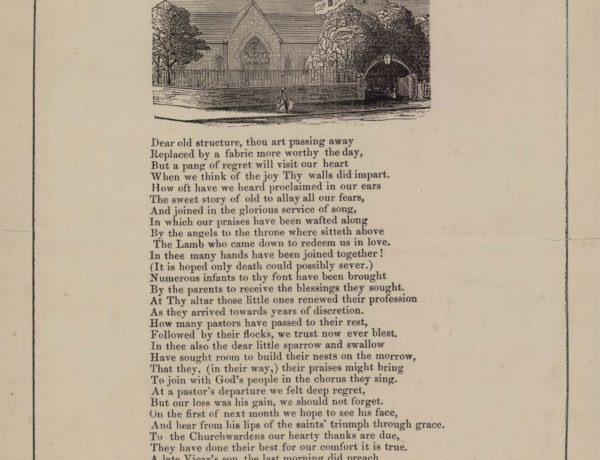 Dear old structure, thou art passing away
Replaced by a fabric more worthy the day,
But a pang of regret will visit our heart
When we think of the joy Thy walls did impart.
How oft have we heard proclaimed in our ears
The sweet story of old to allay all our fears,
And joined in the glorious service of song,
In which our praises have been wafted along
By the angels to the throne where sitteth above
The Lamb who came down to redeem us in love.
In thee many hands have been joined together !
(It is hoped only death could possibly sever.)
Numerous infants to thy font have been brought
By the parents to receive the blessings they sought.
At Thy altar those little ones renewed their profession
As they arrived towards years of discretion.
How many pastors have passed to their rest,
Followed by their flocks, we trust now ever blest.
In thee also the dear little sparrow and swallow
Have sought room to build their nests on the morrow,
That they, (in their way,) their praises might bring
To join with God's people in the chorus they sing.
At a pastor's departure we felt deep regret,
But our loss was his gain, we should not forget.
On the first of next month we hope to see his face,
And hear from his lips of the saints' triumph through grace.
To the Churchwardens our hearty thanks are due,
They have done their best for our comfort it is true.
A late Vicar's son, the last morning did preach